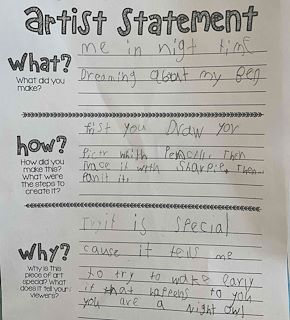 artist Statement
What?
What did you make?
me in nigt time
Dreaming about my Bed
how?
How did you make this? What were the steps to create it?
first you Draw yor
Pictr whith Pencil. Then
trace it with Sharpie. Then
Panit it.
Why?
Why is this piece of art special? What does it tell your viewers?
it is special
cause it tells me
to try to wake early
if that happens to you
you are a night owl